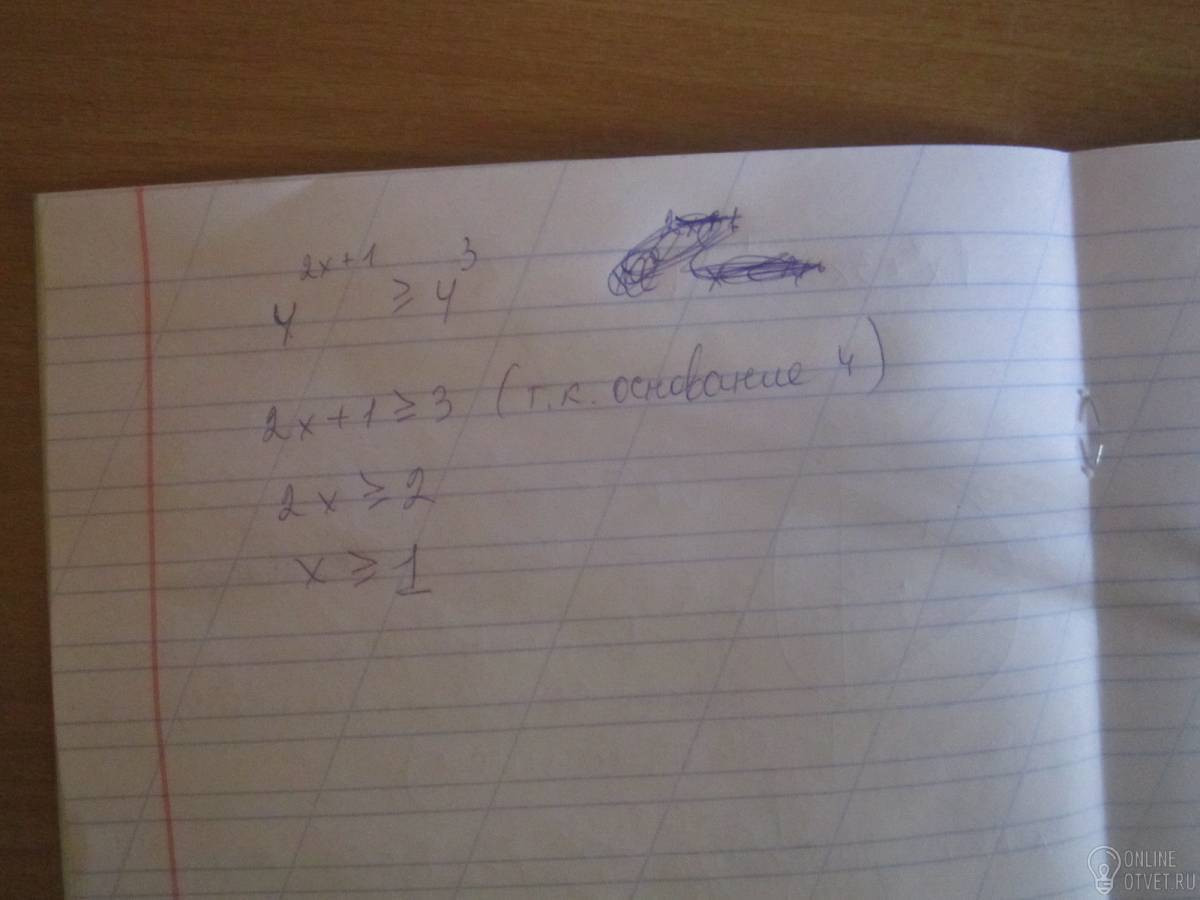 4^(2x+1) ≥ 4^3
2x+1 ≥ 3 (т.к. основание 4)
2x ≥ 2
x ≥ 1
ONLINE
OTVET.RU